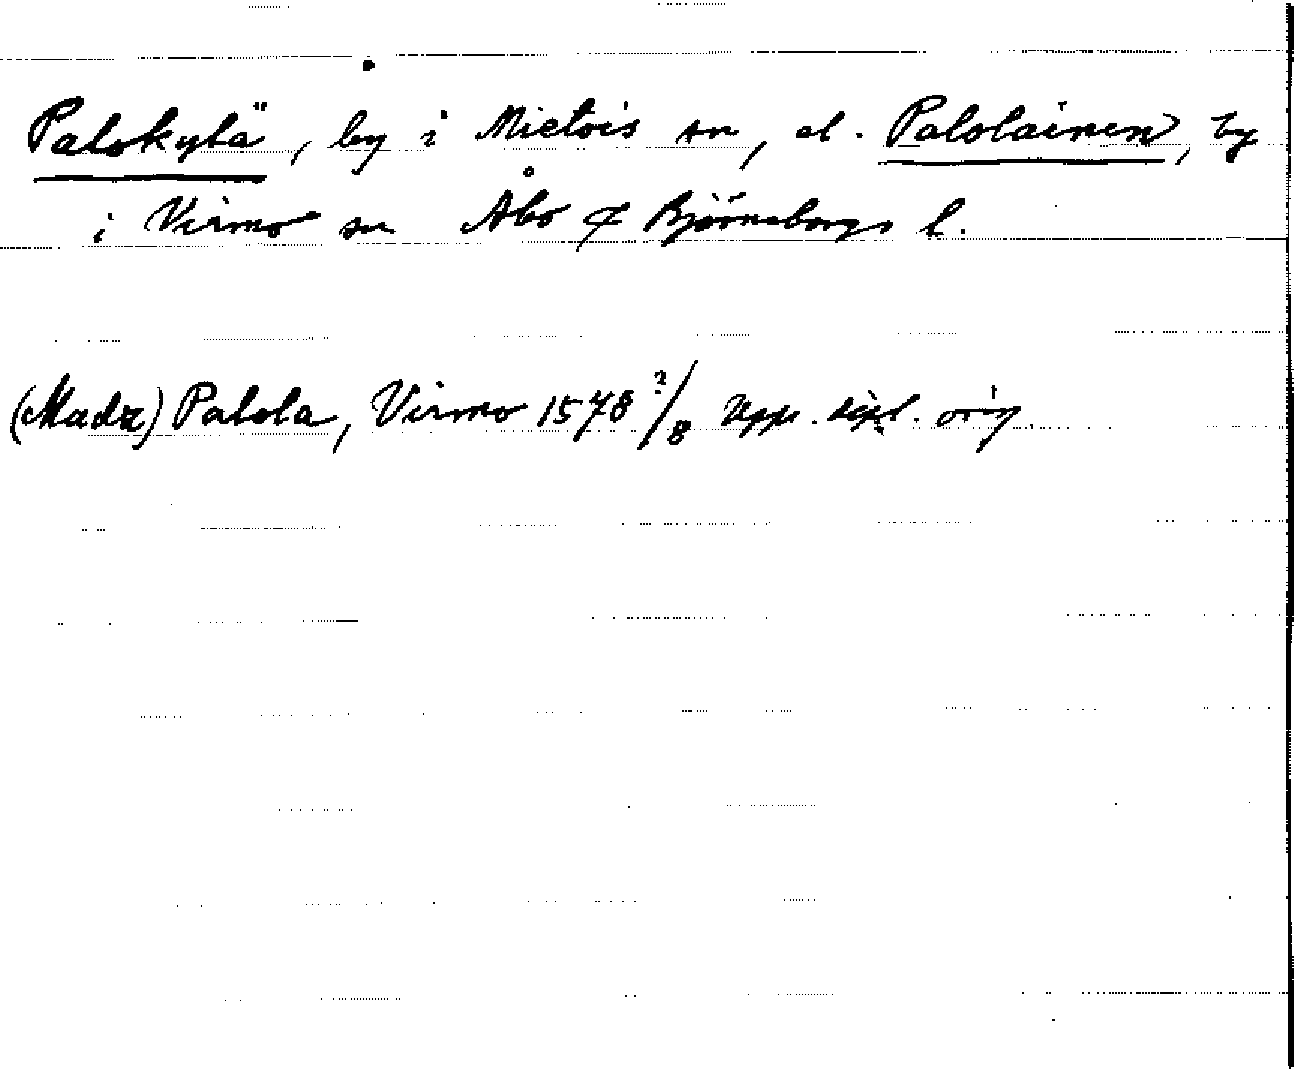 Palokylä, by i Mietois sn, el. Palolainen, by
i Virmo sn Åbo & Björneborgs l.
(Madz) Palola, Virmo 1578 2/8 Upps. dipl. orig.